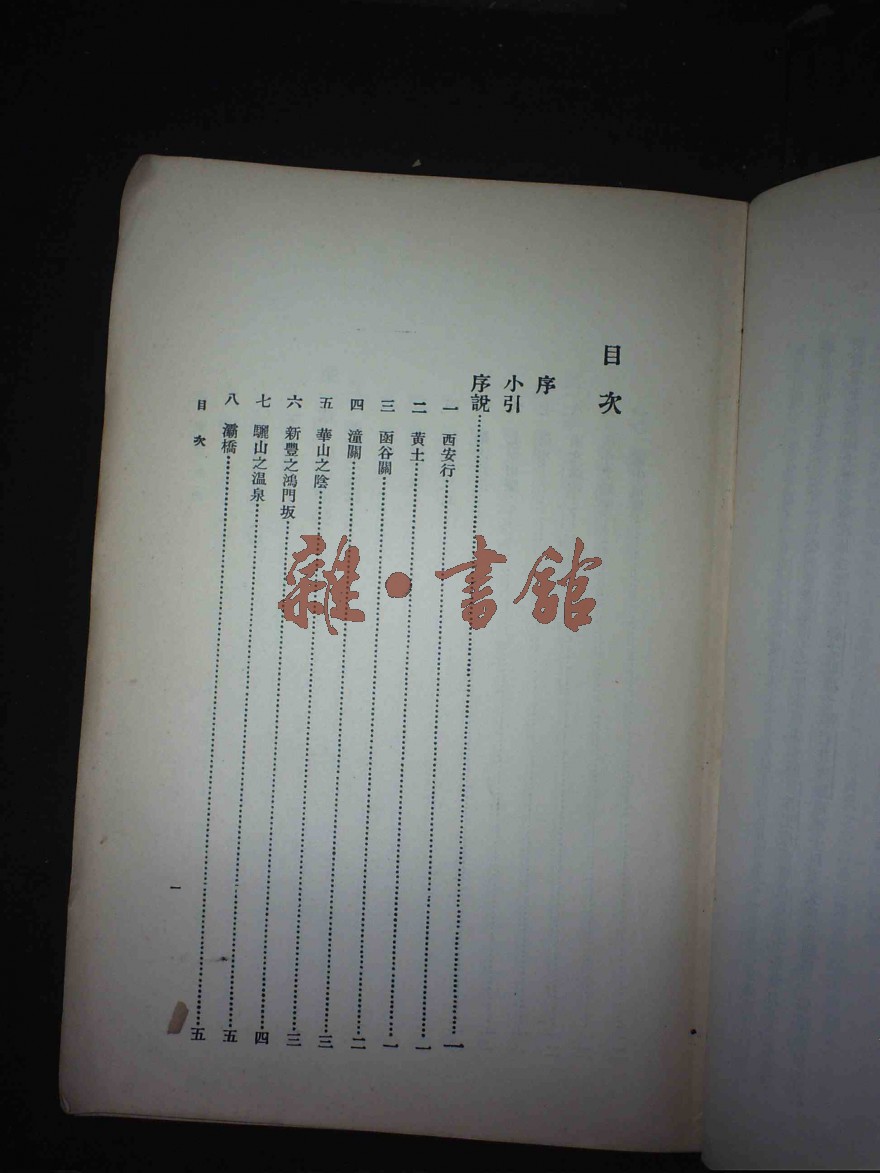 目次
序
小引
序說……一
一 西安行……一
二 黃土……一
三 函谷關……二
四 潼關……三
五 華山之陰……三
六 新豐之鴻門坂……四
七 驪山之溫泉……五
八 灞橋……五
目次 一
雜·書館